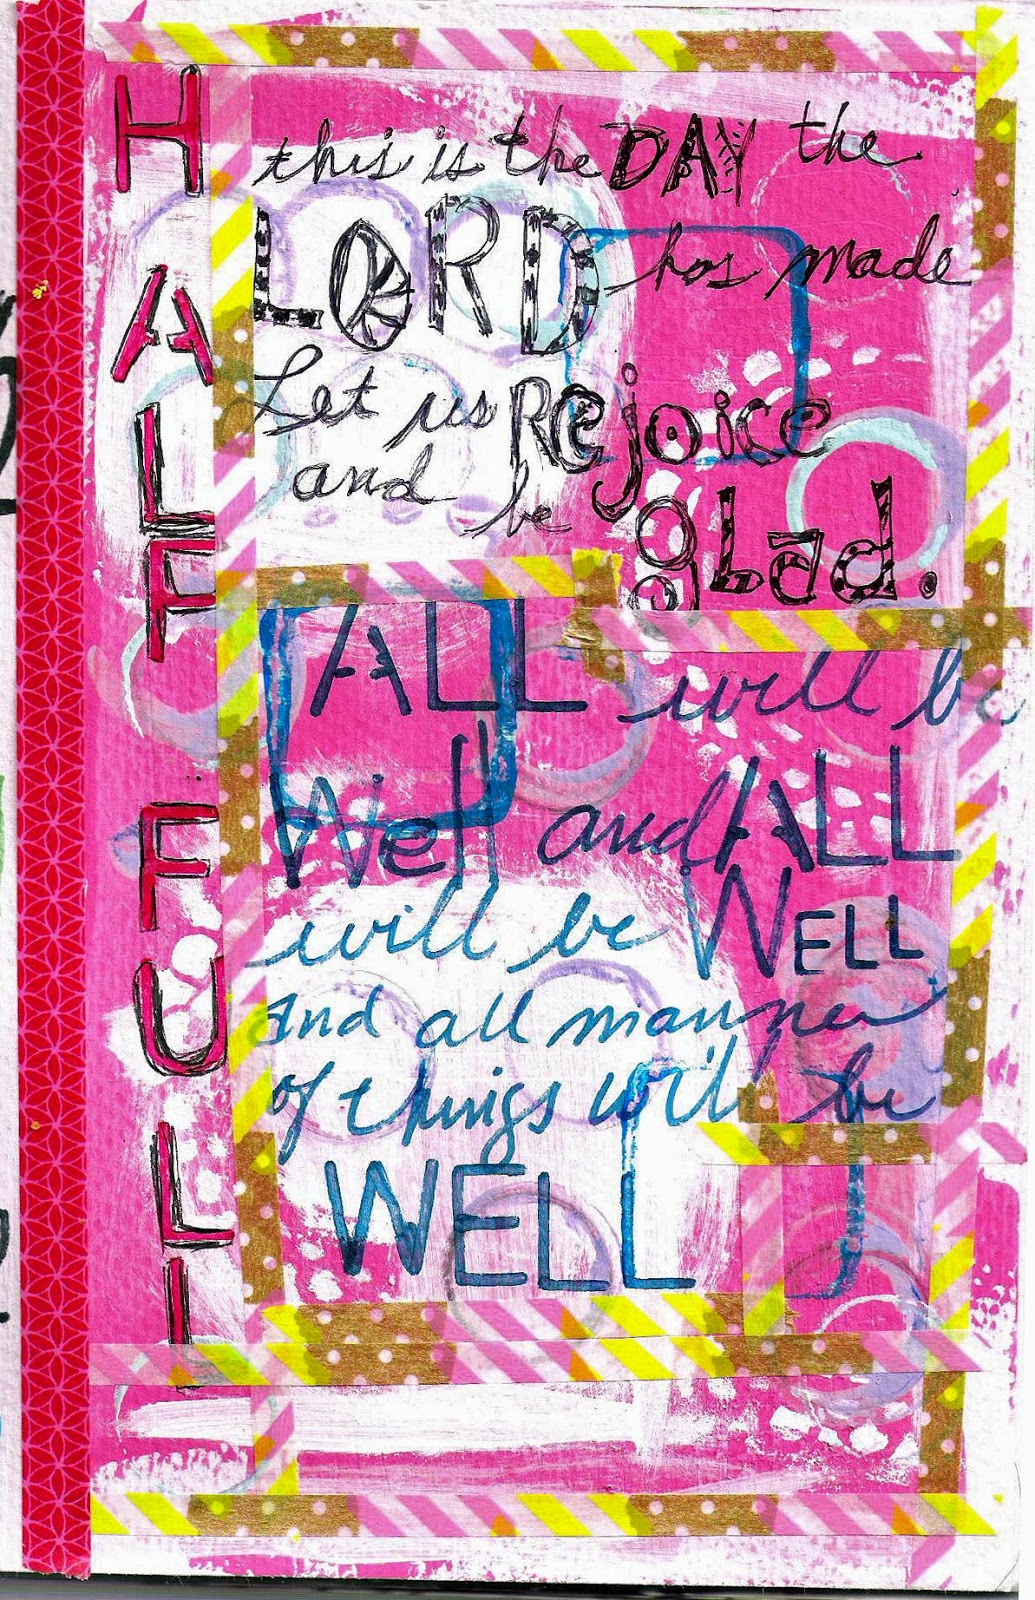 HALF FULL
this is the DAY the
LORD has made
Let us Rejoice
and be glad.
ALL will be
Well and ALL
will be WELL
And all manner
of things will be
WELL